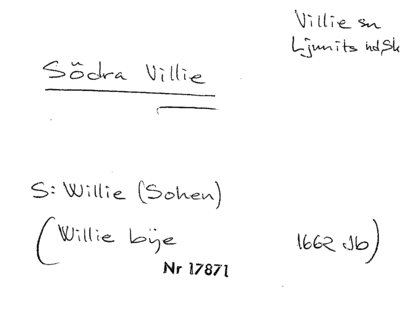 Villie sn
Ljunits hd, Sk
Södra Villie
S: Willie (Sohen)
(Willie bÿe 1662 Jb)
Nr 17871